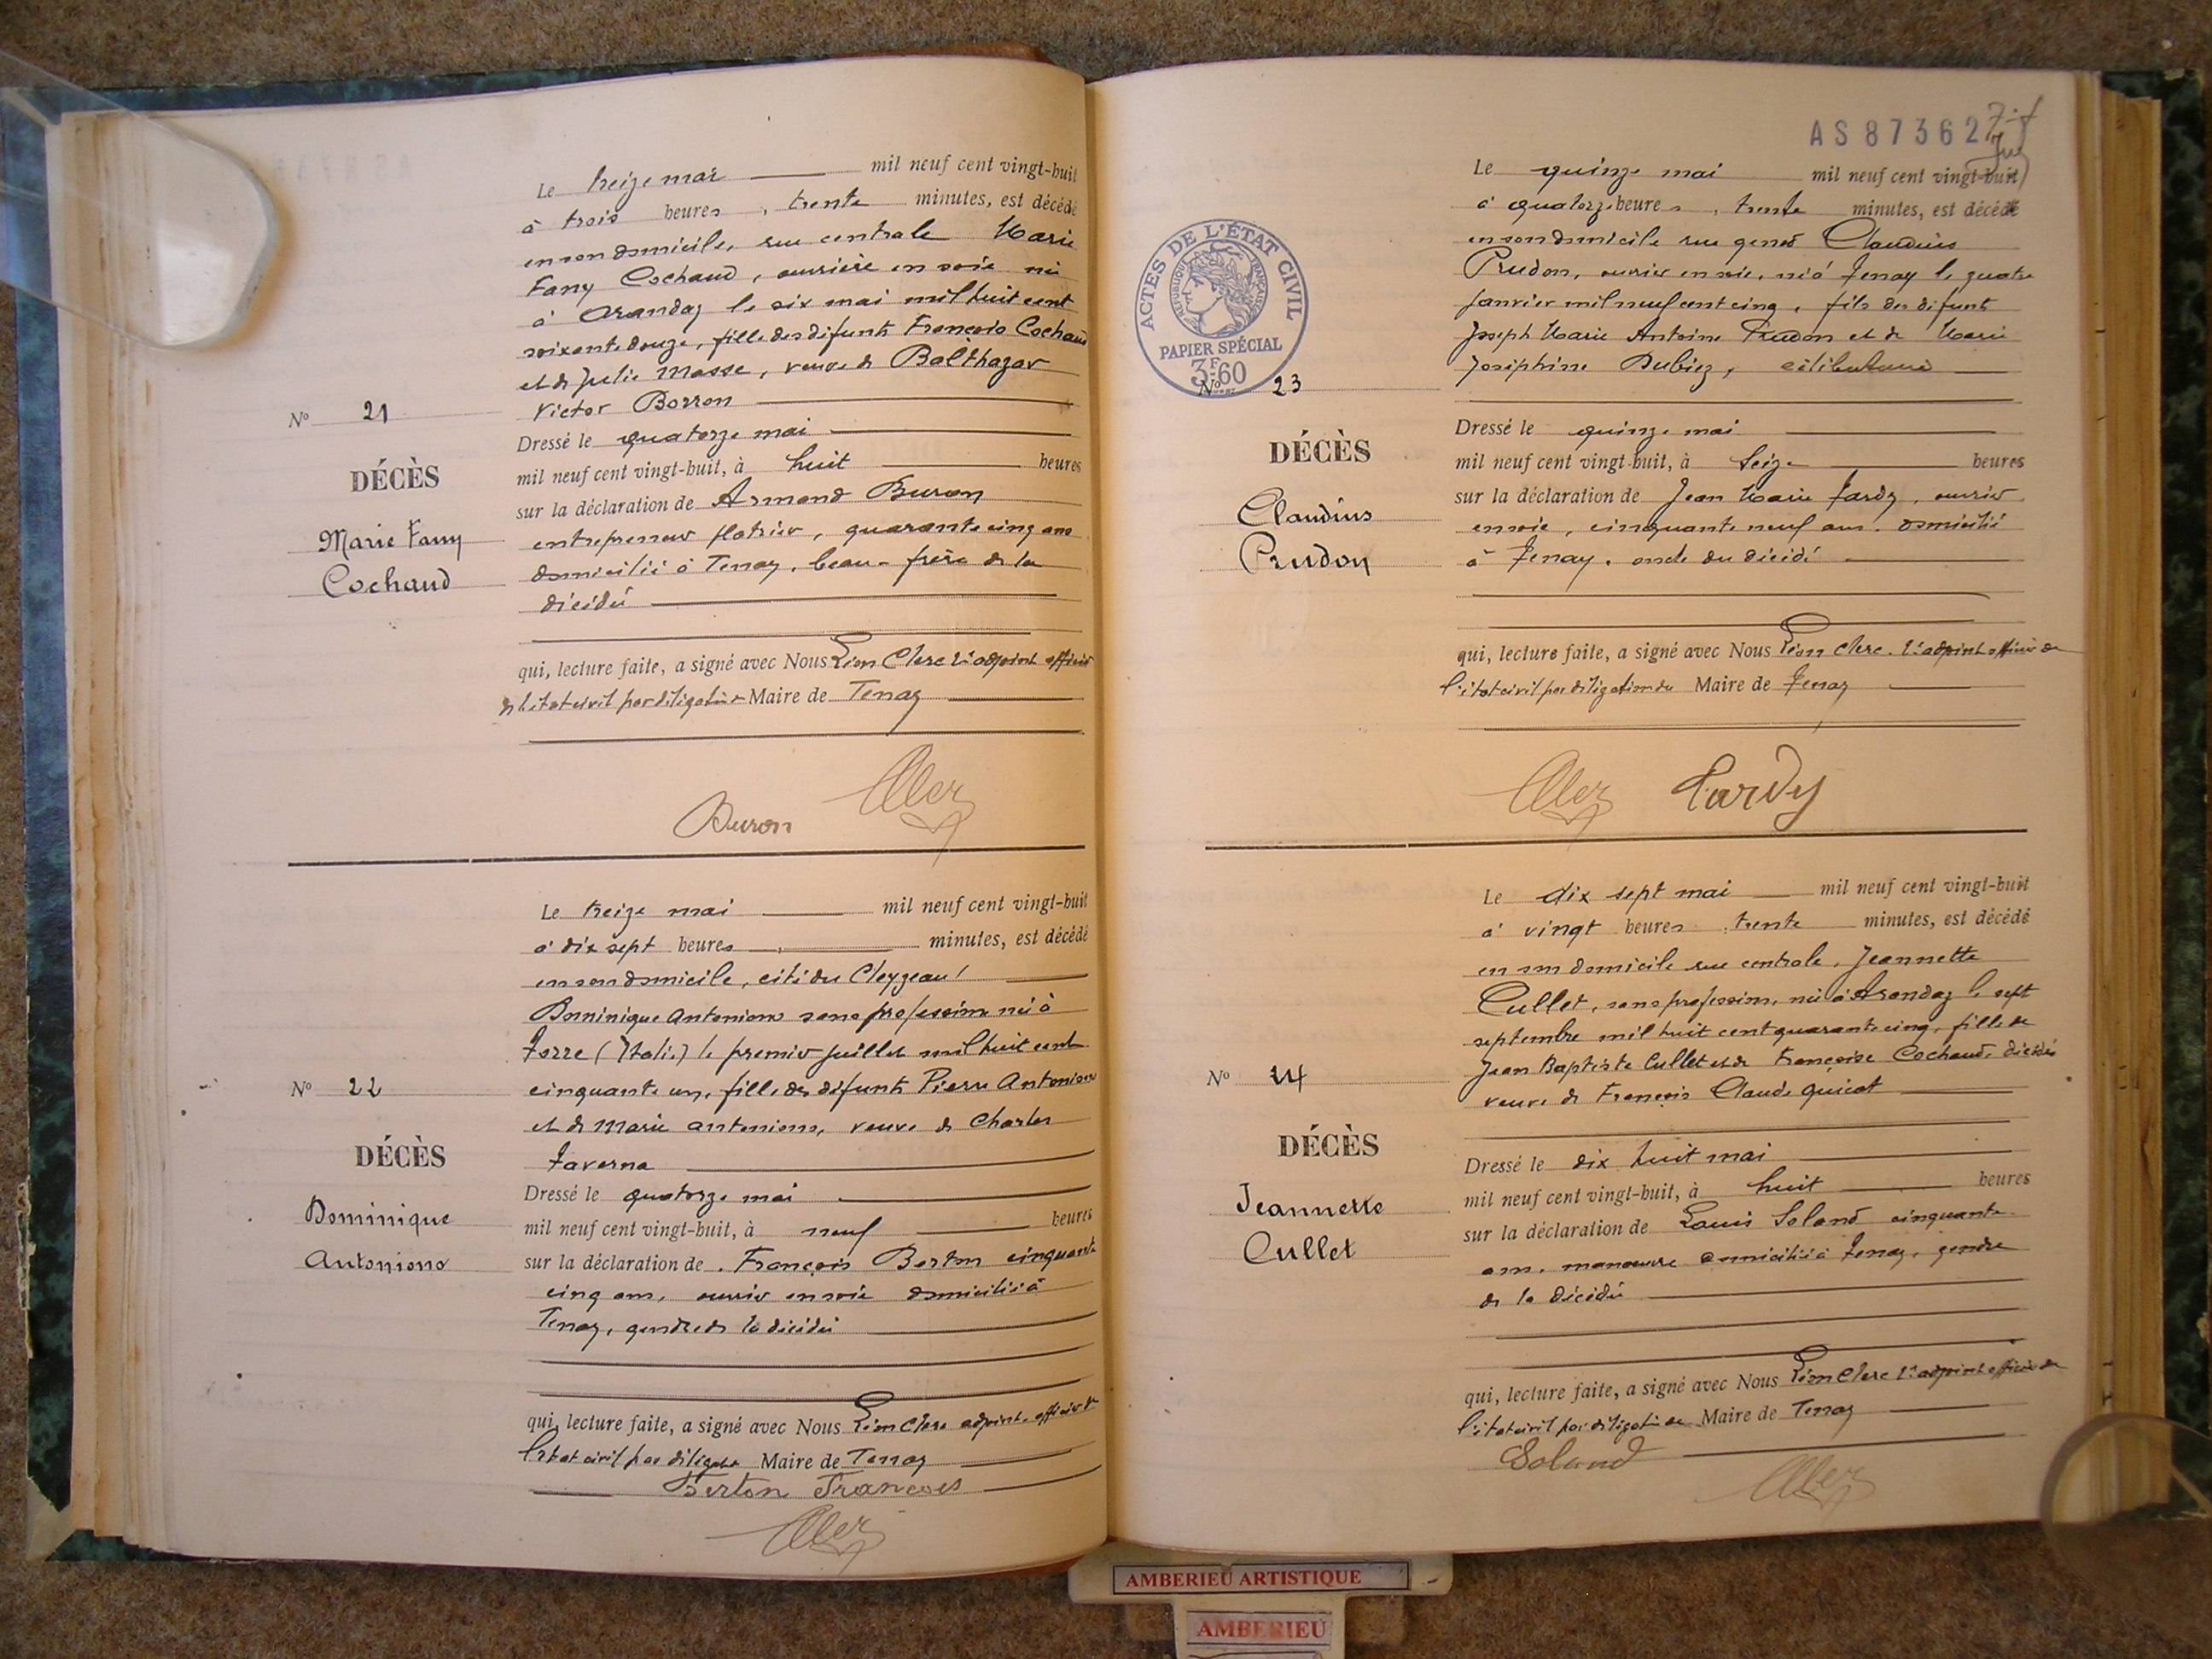 Le treize mai mil neuf cent vingt-huit
à trois heures, trente minutes, est décédé
en son domicile, rue centrale Marie
Fany Cochaud, ouvrière en soie née
à Arandas le six mai mil huit cent
soixante douze, fille des défunts François Cochaud
et de Julie Masse, veuve de Balthazar
Victor Borron
Nº 21
DÉCÈS
Marie Fany
Cochaud
Dressé le quatorze mai
mil neuf cent vingt-huit, à huit heures
sur la déclaration de Armand Buron
entrepreneur platrier, quarante cinq ans
domicilié à Tenay, beau-frère de la
décédée
qui, lecture faite, a signé avec Nous Léon Clerc 1er adjoint officier
de l'état civil par délégation Maire de Tenay
Buron
Le treize mai mil neuf cent vingt-huit
à dix sept heures, minutes, est décédé
en son domicile, cité du Cleyzeau
Dominique Antoniono sans profession née à
Torre (Italie) le premier juillet mil huit cent
cinquante un, fille des défunts Pierre Antoniono
et de Marie Antoniono, veuve de Charles
Taverna
Nº 22
DÉCÈS
Dominique
Antoniono
Dressé le quatorze mai
mil neuf cent vingt-huit, à neuf heures
sur la déclaration de François Berton cinquante
cinq ans, ouvrier en soie domicilié à
Tenay, gendre de la décédée
qui, lecture faite, a signé avec Nous Léon Clerc adjoint officier de
l'état civil par délégation Maire de Tenay
Berton François
AS87362
Le quinze mai mil neuf cent vingt-huit
à quatorze heures, trente minutes, est décédé
en son domicile rue Claudius
Prudon, ouvrier en soie, né à Tenay le quatre
janvier mil neuf cent cinq, fils des défunts
Joseph Marie Antoine Prudon et de Marie
Joséphine Dubiez, célibataire
ACTES DE L'ÉTAT CIVIL
RÉPUBLIQUE FRANÇAISE
PAPIER SPÉCIAL
3F.60
Nº 23
DÉCÈS
Claudius
Prudon
Dressé le quinze mai
mil neuf cent vingt-huit, à seize heures
sur la déclaration de Jean Marie Tardy, ouvrier
en soie, cinquante neuf ans, domicilié
à Tenay, oncle du décédé
qui, lecture faite, a signé avec Nous Léon Clerc, 1er adjoint officier de
l'état civil par délégation du Maire de Tenay
Tardy
Le dix sept mai mil neuf cent vingt-huit
à vingt heures trente minutes, est décédé
en son domicile rue centrale, Jeannette
Cullet, sans profession, née à Arandas le sept
septembre mil huit cent quarante cinq, fille de
Jean Baptiste Cullet et de Françoise Cochaud, décédés
veuve de François Claude Guicot
Nº 24
DÉCÈS
Jeannette
Cullet
Dressé le dix huit mai
mil neuf cent vingt-huit, à huit heures
sur la déclaration de Louis Soland cinquante
ans, manœuvre domicilié à Tenay, gendre
de la décédée
qui, lecture faite, a signé avec Nous Léon Clerc 1er adjoint officier de
l'état civil par délégation du Maire de Tenay
Soland
AMBERIEU ARTISTIQUE
AMBERIEU